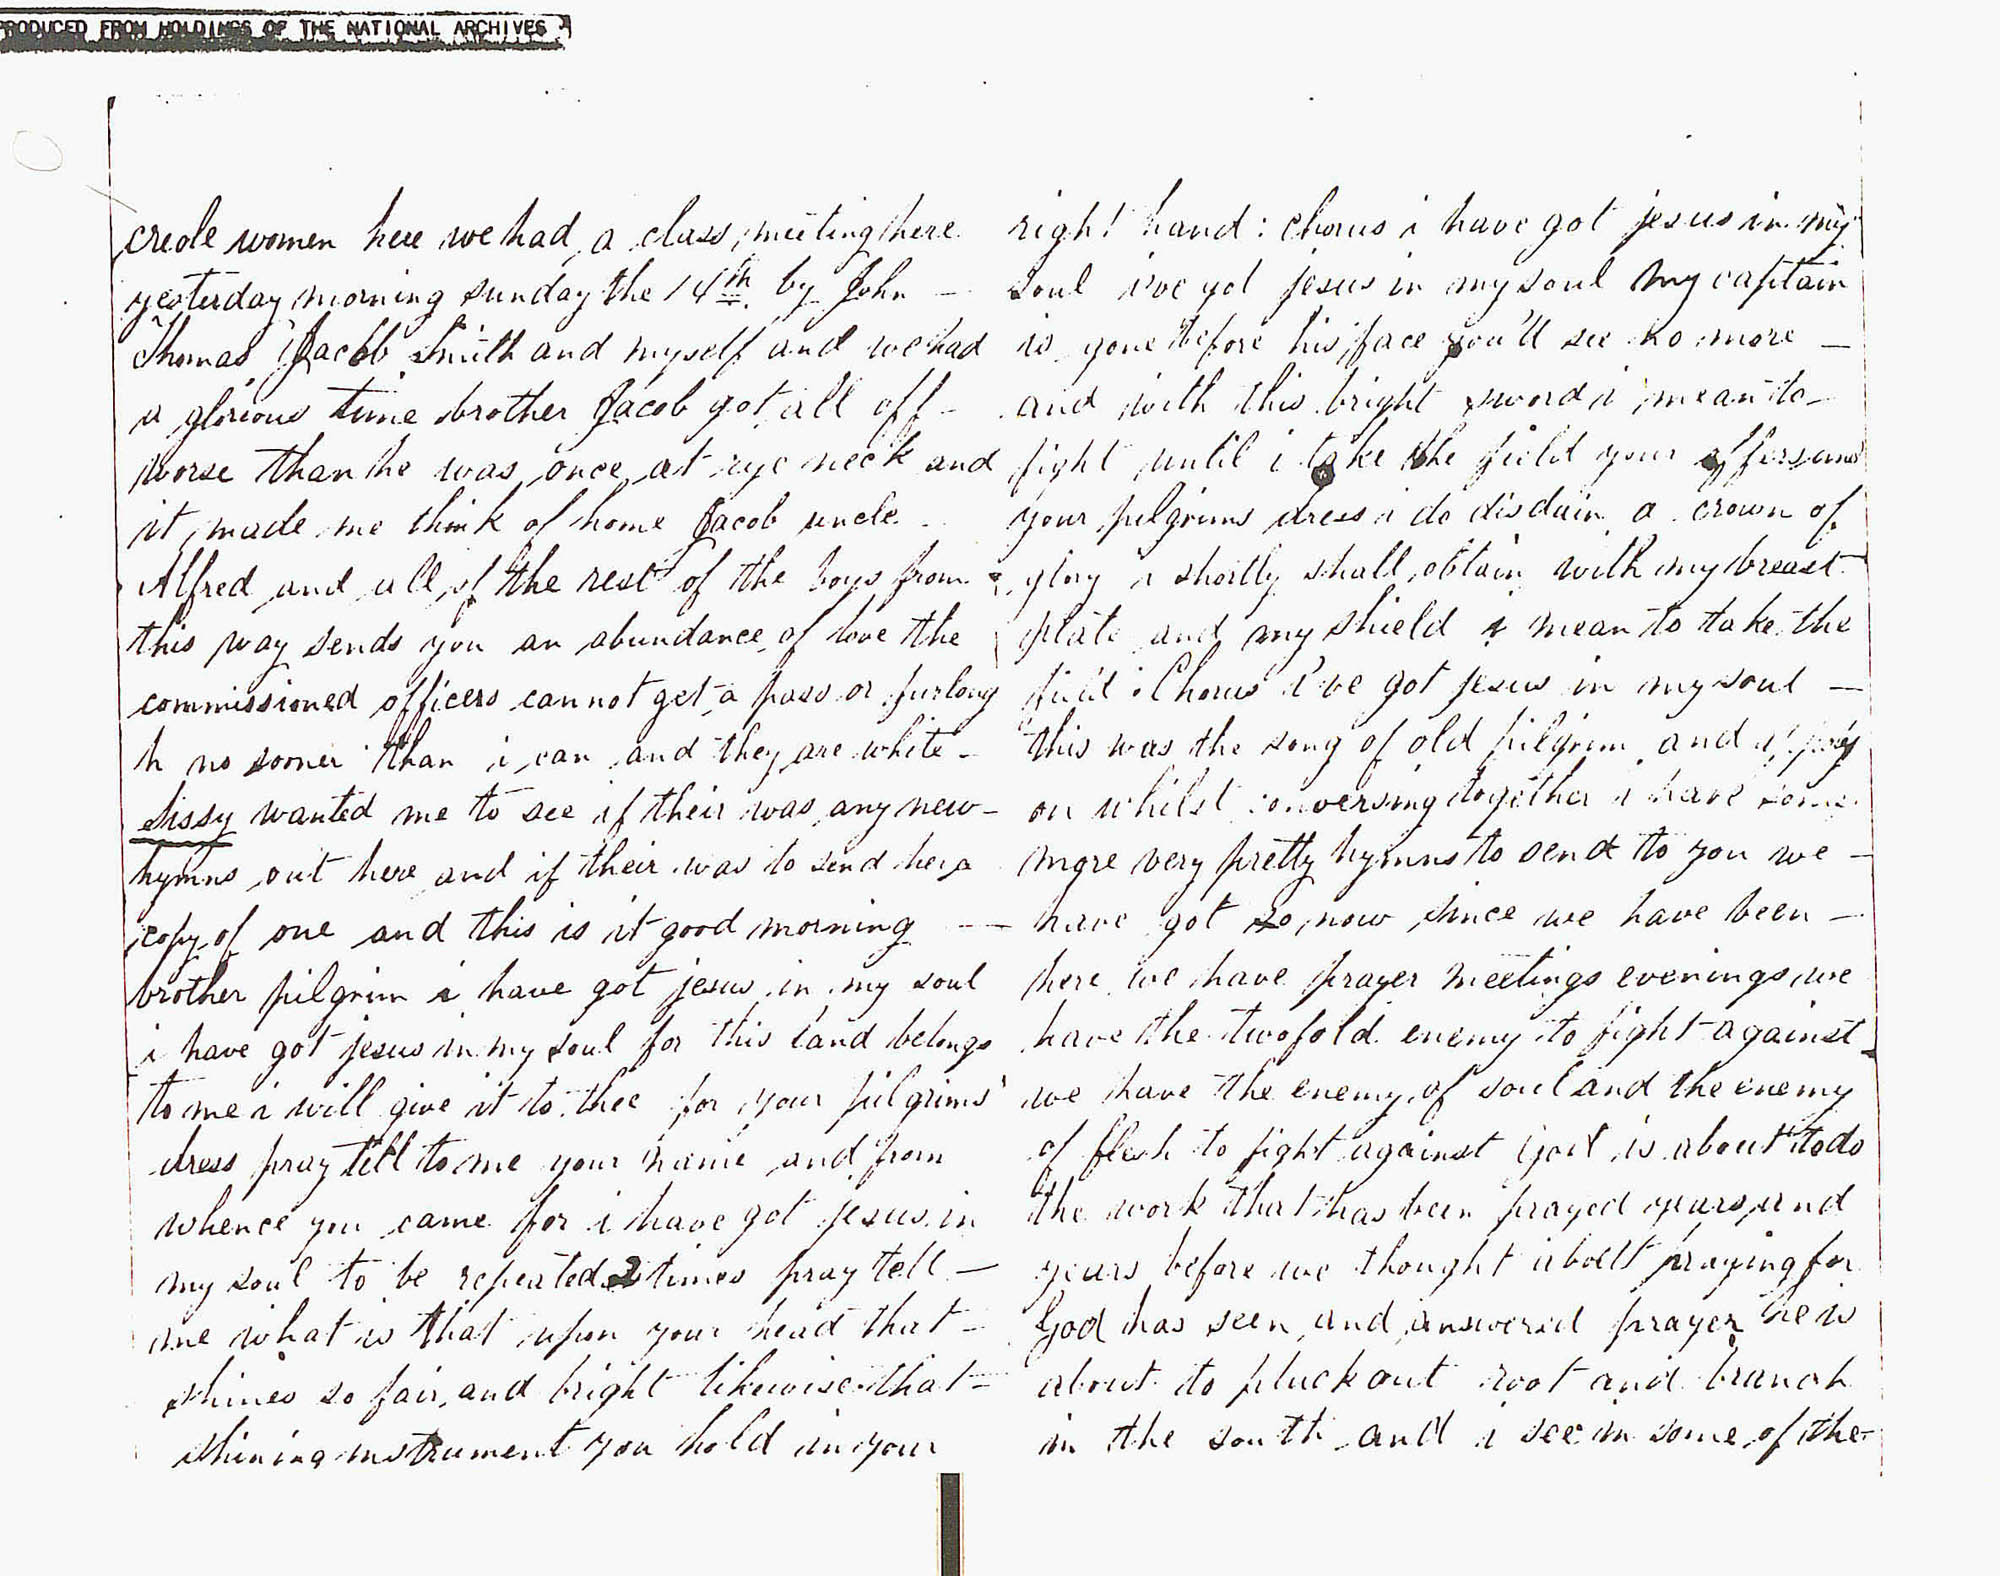 PRODUCED FROM HOLDINGS OF THE NATIONAL ARCHIVES
creole women here we had a class meeting here
yesterday morning sunday the 14th by John —
Thomas Jacob Smith and myself and we had
a glorious time brother Jacob got all off —
worse than he was once at rye neck and
it made me think of home Jacob uncle
Alfred and all of the rest of the boys from
this way sends you an abundance of love the
commissioned officers cannot get a pass or furlong
h no sooner than i can and they are white —
sissy wanted me to see if their was any new —
hymns out here and if their was to send her a
copy of one and this is it good morning —
brother pilgrim i have got jesus in my soul
i have got jesus in my soul for this land belongs
to me i will give it to thee for your pilgrims'
dress pray tell to me your name and from
whence you came for i have got jesus in
my soul to be repeated 2 times pray tell —
me what is that upon your head that —
shines so fair and bright likewise that —
shining instrument you hold in your
right hand : chorus i have got jesus in my
soul i've got jesus in my soul My captain
is gone before his face you'll see no more —
and with this bright sword i mean to —
fight until i take the field your offers and
your pilgrims dress i do disdain a crown of
glory i shortly shall obtain with my breast
plate and my shield i mean to take the
field Chorus i've got jesus in my soul —
this was the song of old pilgrim and
on whilst conversing together i have some
more very pretty hymns to send to you we —
have got so now since we have been —
here we have prayer meetings evenings we
have the twofold enemy to fight against
we have the enemy of soul and the enemy
of flesh to fight against God is about to do
the work that has been prayed years and
years before we thought about praying for
God has seen and answered prayer he is
about to pluck out root and branch
in the south and i see in some of the